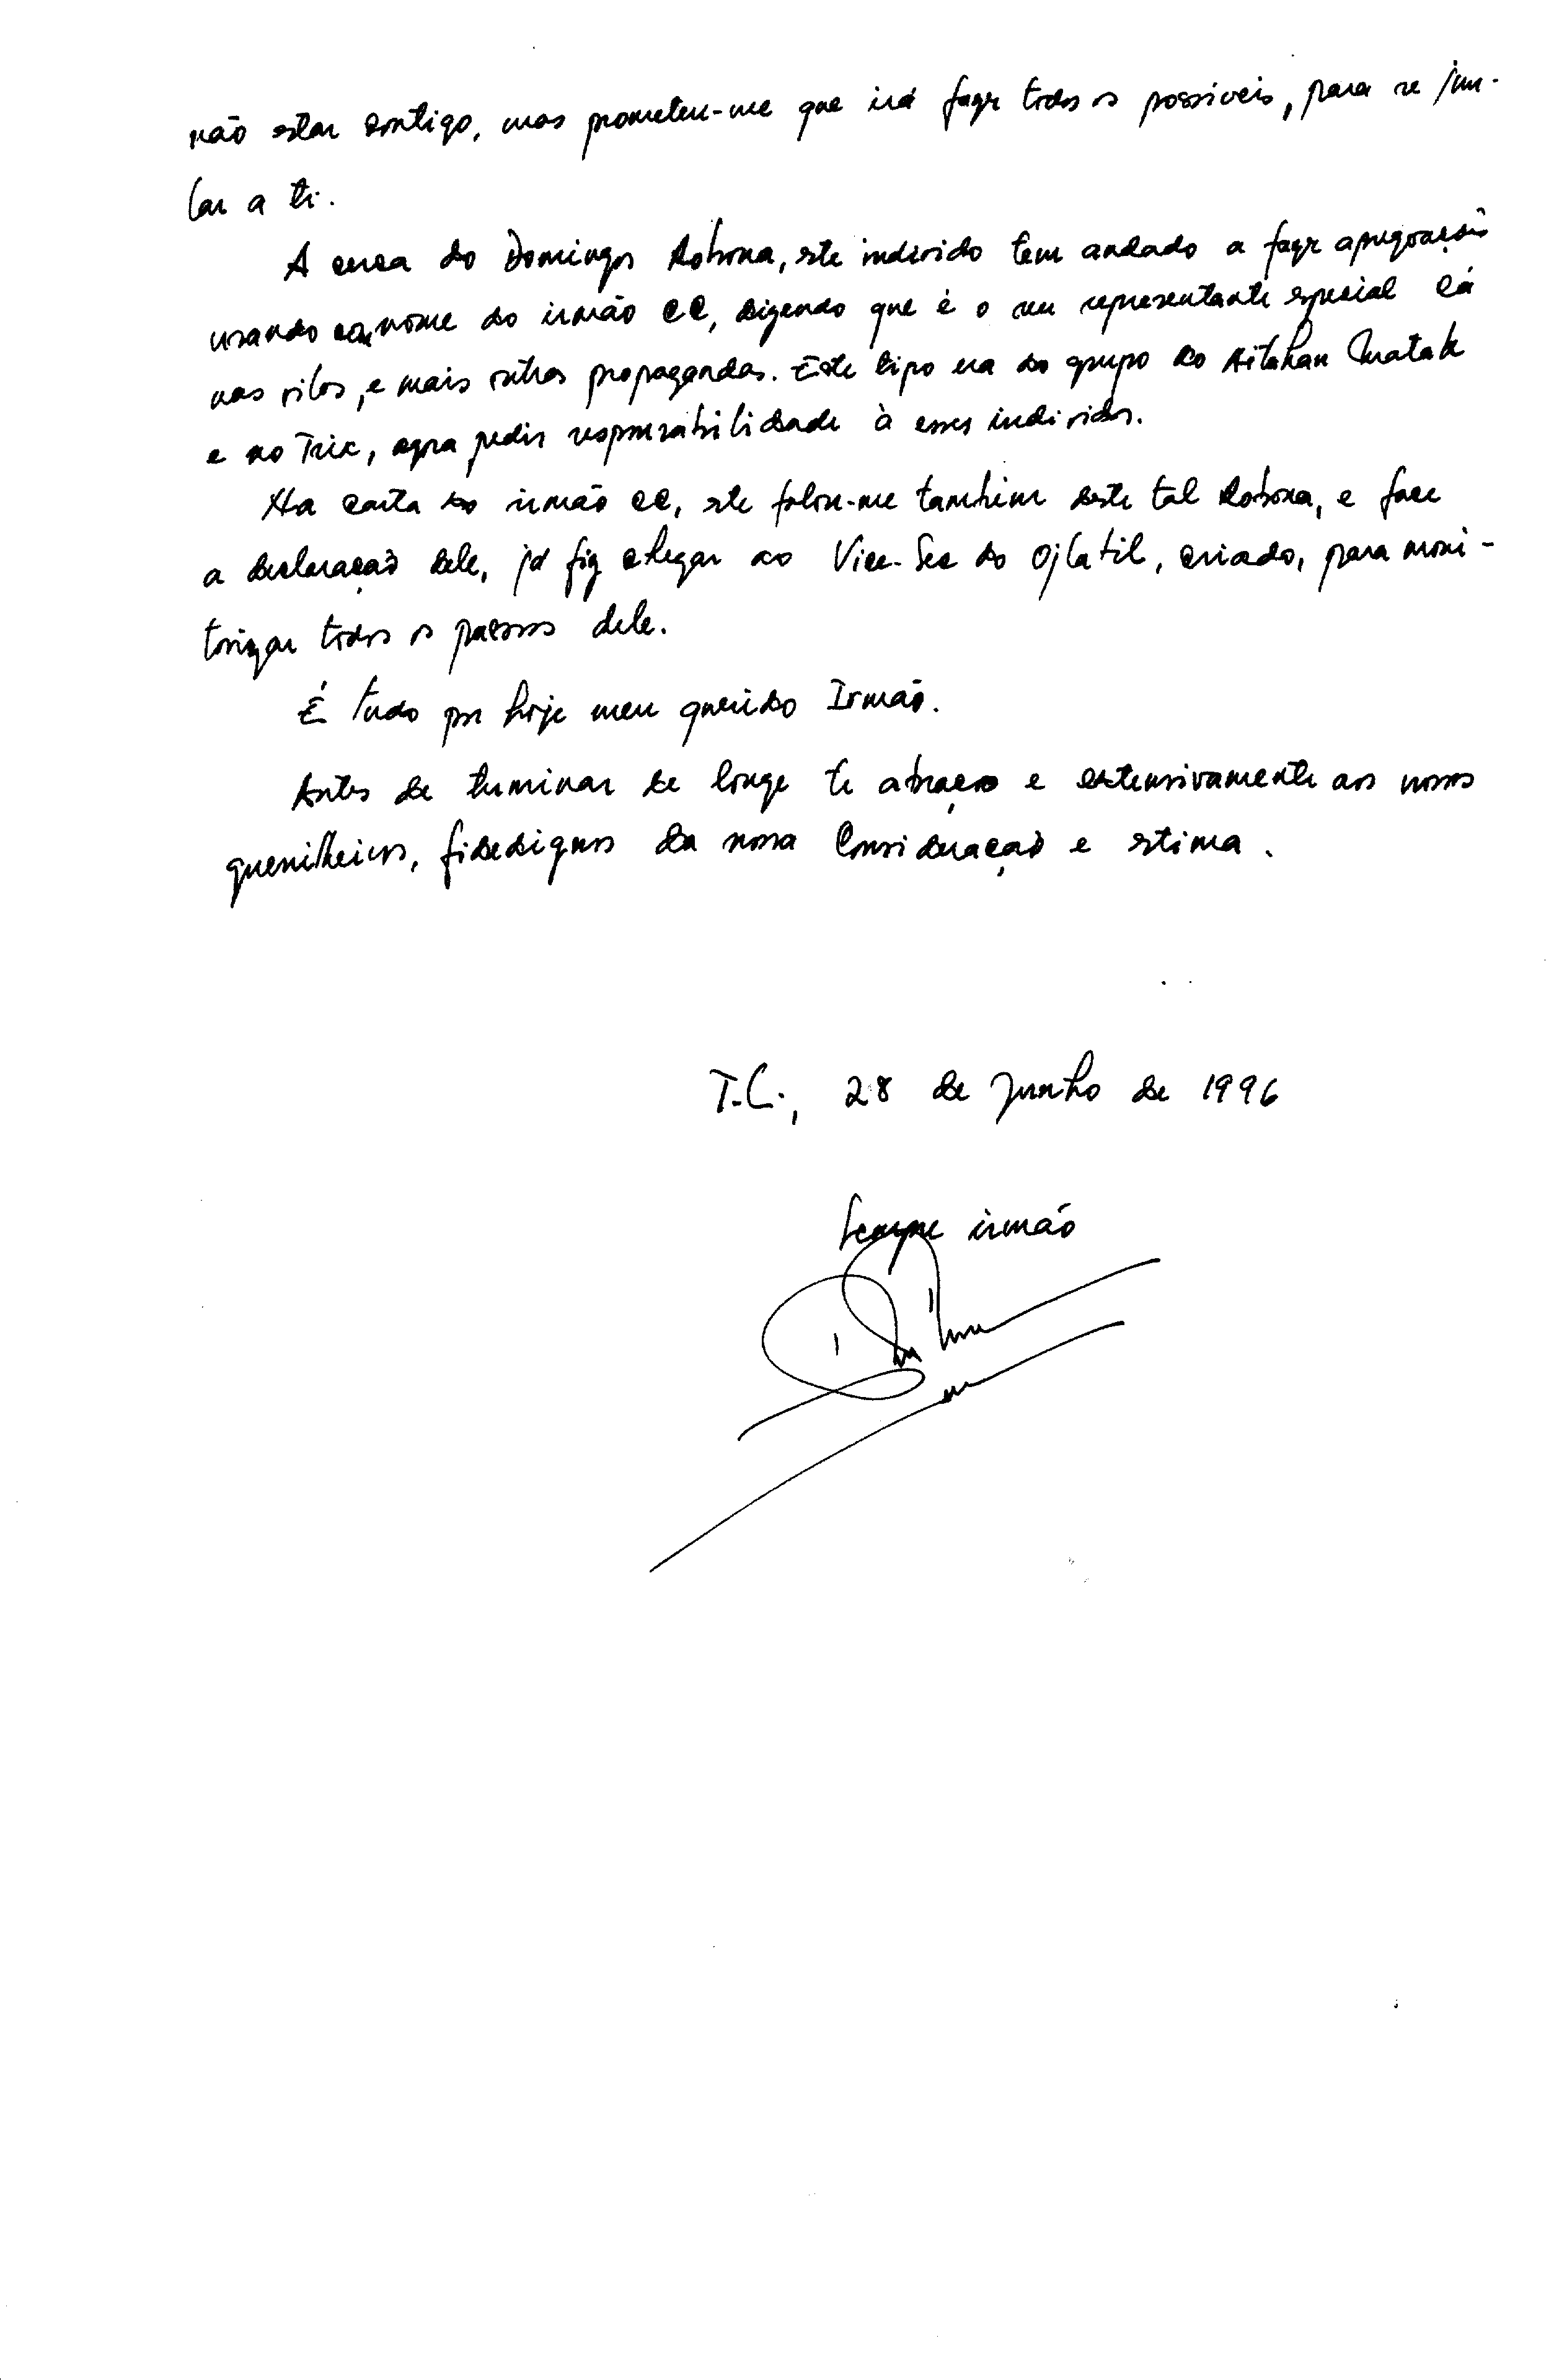 não estar contigo, mas prometeu-me que irá fazer todos os possíveis, para se jun-
tar a ti.
A cerca do Domingos Robona, este individo tem andado a fazer apregoações
usando nome do irmão CC, dizendo que é o seu representante especial cá
nas vilas, e mais outras propagandas. Este tipo era do grupo do Aitahan Matak
e no Tric, agora pedir responsabilidade à esses individos.
Na carta do irmão CC, este falou-me também deste tal Robona, e face
a declaração dele, já fiz chegar ao Vice-Sec do Ojlatil, criado, para moni-
torizar todos os passos dele.
É tudo por hoje meu querido Irmão.
Antes de terminar de longe te abraço e extensivamente aos nossos
guerrilheiros, fidedignos da nossa Consideração e estima.
T.L., 28 de Junho de 1996
Sempre irmão